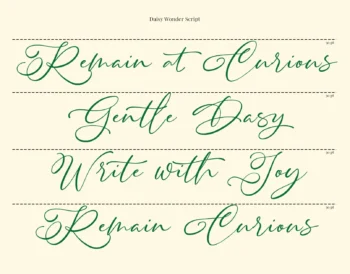 Daisy Wunder Script
Remain at Curious
Gentle Dasy
Write with Joy
Remain Curious